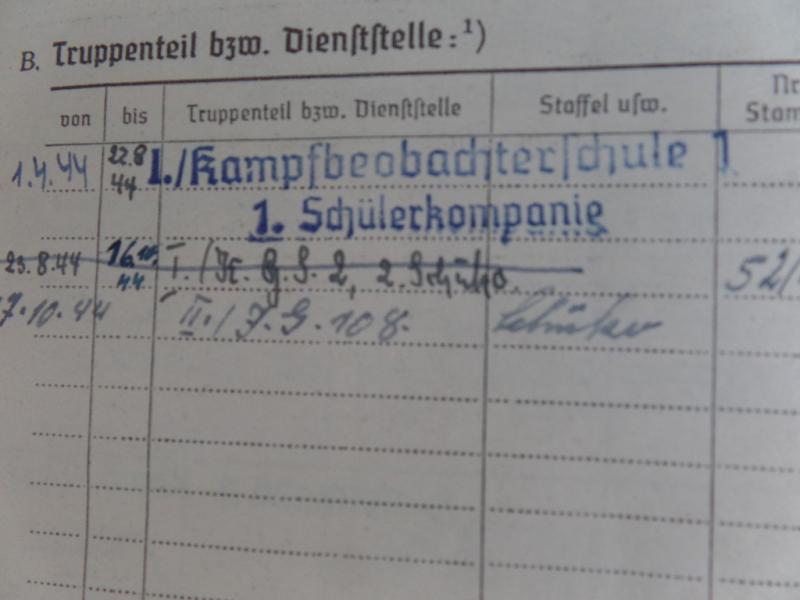 B. Truppenteil bzw. Dienststelle:¹)
von bis Truppenteil bzw. Dienststelle Staffel usw. Nr
Stam
1.4.44 22.8 44 I./Kampfbeobachterschule 1
1. Schülerkompanie
23.8.44 16.10. 44 I./K.B.S. 2, 2. Schüko. 52/
7.10.44 II./J.G. 108. Schüler